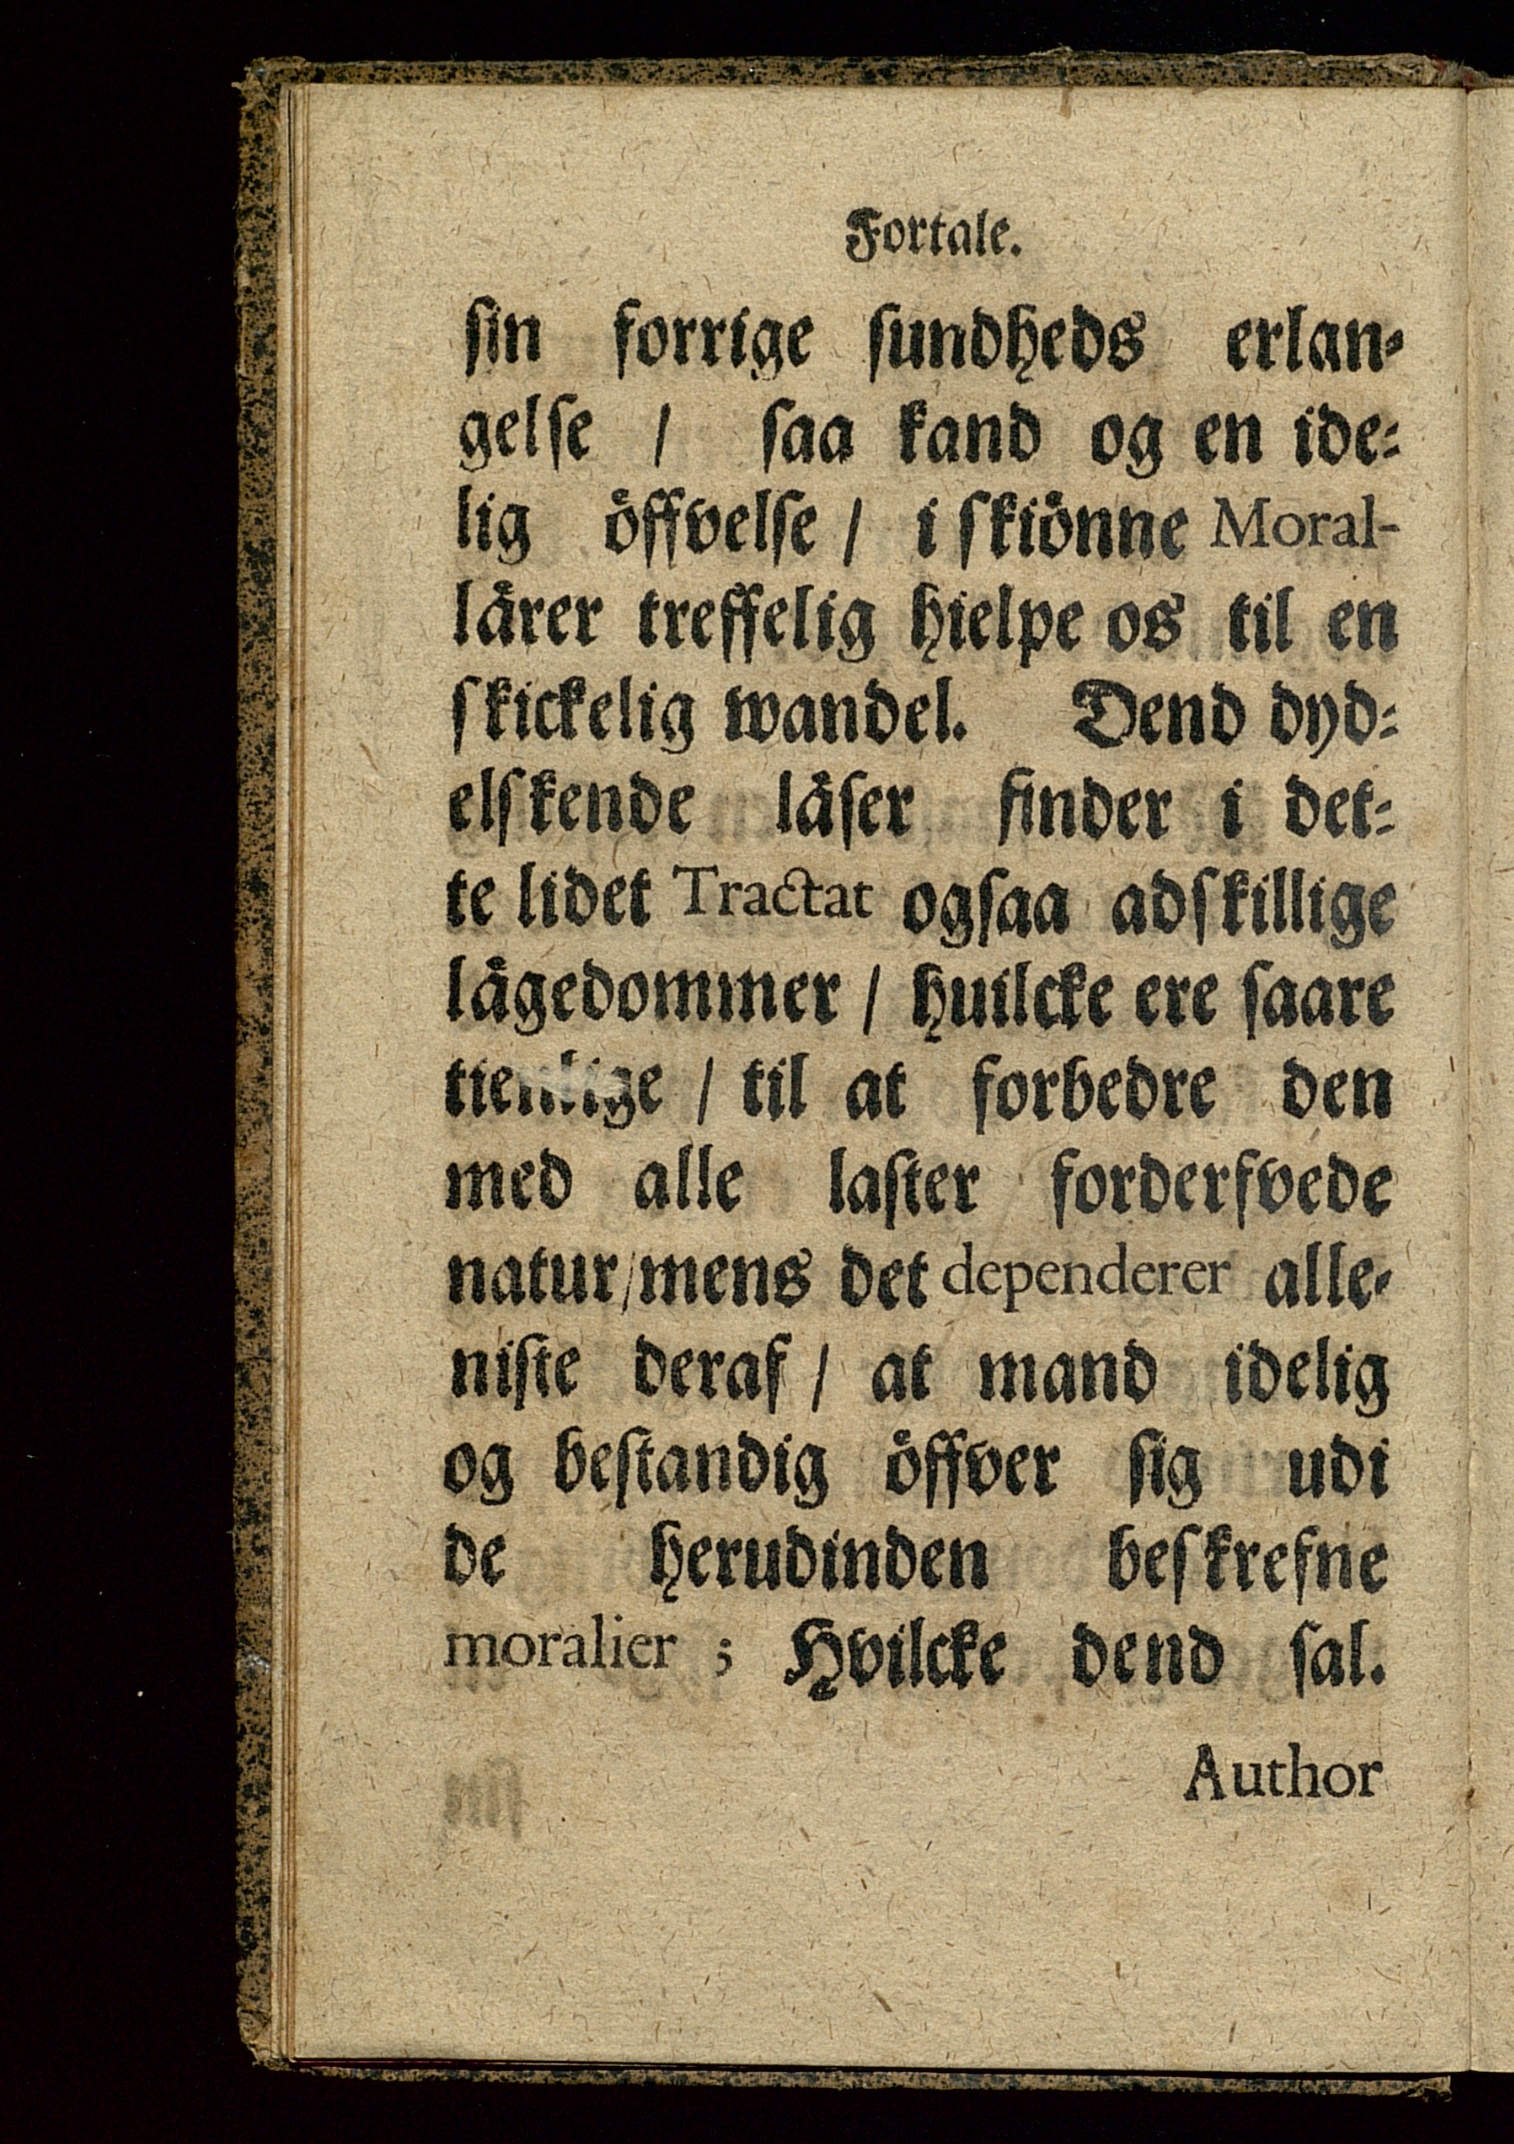 Fortale.
ſin forrige ſundheds erlan-
gelſe / ſaa kand og en ide-
lig öffvelſe / i ſkiönne Moral-
lärer treffelig hielpe os til en
ſkickelig wandel. Dend dyd-
elſkende läſer finder i det-
te lidet Tractat ogſaa adſkillige
lägedommer / huilcke ere ſaare
tienlige / til at forbedre den
med alle laſter forderfvede
natur/mens det dependerer alle-
niſte deraf / at mand idelig
og beſtandig öffver ſig udi
de herudinden beſkrefne
moralier ; Hvilcke dend ſal.
Author